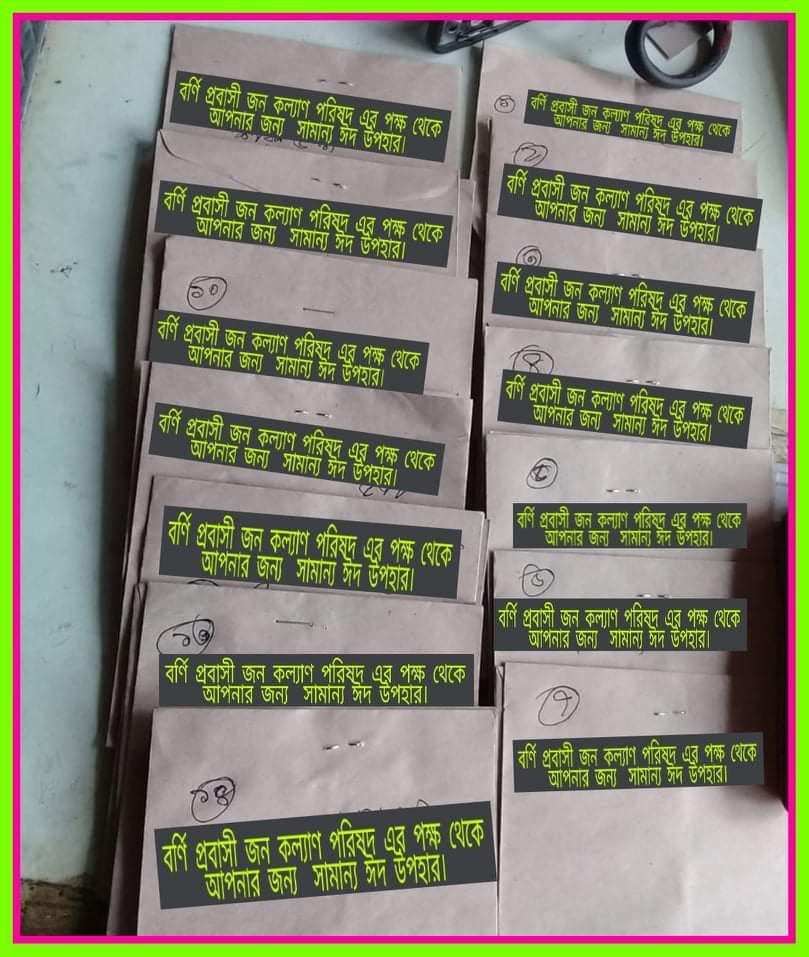 বর্ণি প্রবাসী জন কল্যাণ পরিষদ এর পক্ষ থেকে
আপনার জন্য সামান্য ঈদ উপহার।
বর্ণি প্রবাসী জন কল্যাণ পরিষদ এর পক্ষ থেকে
আপনার জন্য সামান্য ঈদ উপহার।
১০
বর্ণি প্রবাসী জন কল্যাণ পরিষদ এর পক্ষ থেকে
আপনার জন্য সামান্য ঈদ উপহার।
বর্ণি প্রবাসী জন কল্যাণ পরিষদ এর পক্ষ থেকে
আপনার জন্য সামান্য ঈদ উপহার।
বর্ণি প্রবাসী জন কল্যাণ পরিষদ এর পক্ষ থেকে
আপনার জন্য সামান্য ঈদ উপহার।
১৩
বর্ণি প্রবাসী জন কল্যাণ পরিষদ এর পক্ষ থেকে
আপনার জন্য সামান্য ঈদ উপহার।
১৪
বর্ণি প্রবাসী জন কল্যাণ পরিষদ এর পক্ষ থেকে
আপনার জন্য সামান্য ঈদ উপহার।
বর্ণি প্রবাসী জন কল্যাণ পরিষদ এর পক্ষ থেকে
আপনার জন্য সামান্য ঈদ উপহার।
২
বর্ণি প্রবাসী জন কল্যাণ পরিষদ এর পক্ষ থেকে
আপনার জন্য সামান্য ঈদ উপহার।
৩
বর্ণি প্রবাসী জন কল্যাণ পরিষদ এর পক্ষ থেকে
আপনার জন্য সামান্য ঈদ উপহার।
৪
বর্ণি প্রবাসী জন কল্যাণ পরিষদ এর পক্ষ থেকে
আপনার জন্য সামান্য ঈদ উপহার।
৫
বর্ণি প্রবাসী জন কল্যাণ পরিষদ এর পক্ষ থেকে
আপনার জন্য সামান্য ঈদ উপহার।
৬
বর্ণি প্রবাসী জন কল্যাণ পরিষদ এর পক্ষ থেকে
আপনার জন্য সামান্য ঈদ উপহার।
৭
বর্ণি প্রবাসী জন কল্যাণ পরিষদ এর পক্ষ থেকে
আপনার জন্য সামান্য ঈদ উপহার।